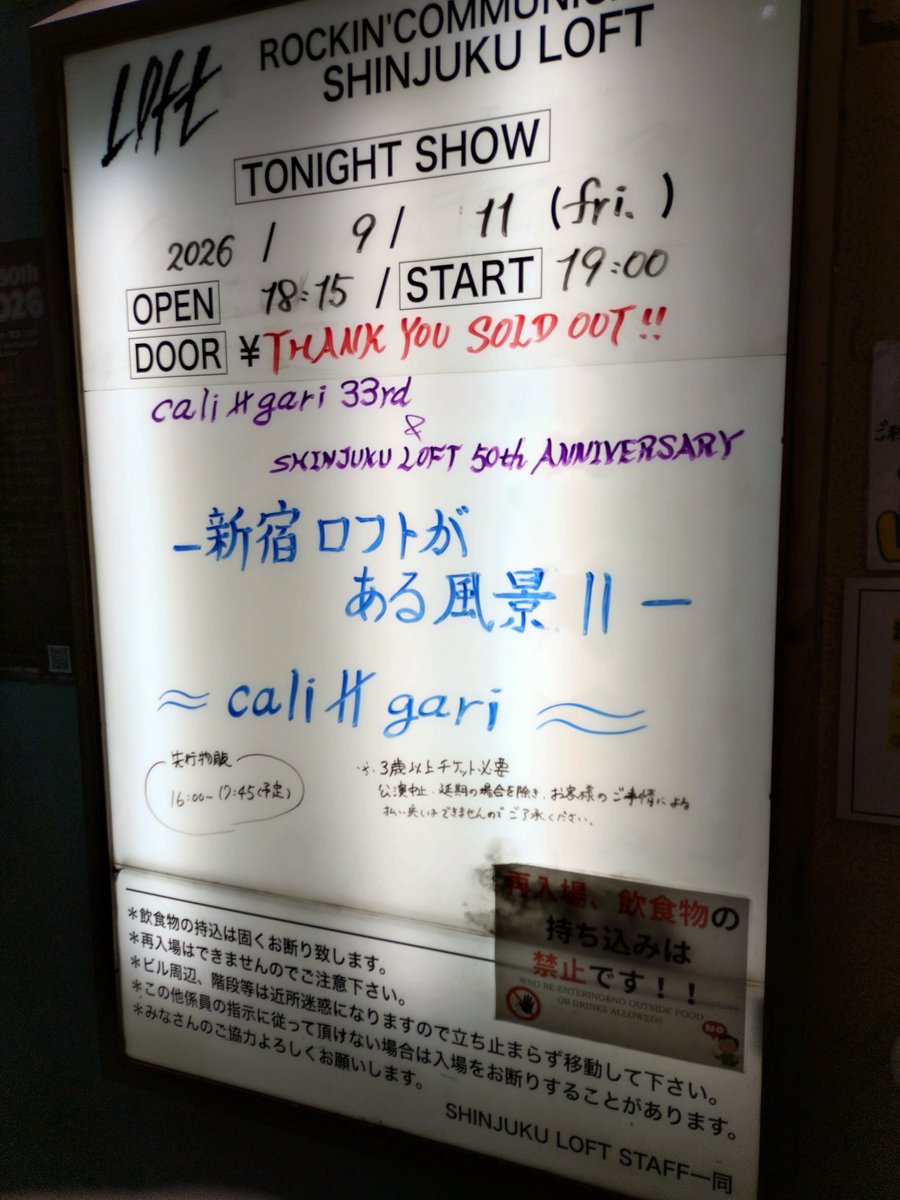 LOFT
ROCKIN'COMMUNIC
SHINJUKU LOFT
TONIGHT SHOW
2026 / 9 / 11 (fri.)
OPEN 18:15 / START 19:00
DOOR ¥THANK YOU SOLD OUT!!
cali≠gari 33rd
&
SHINJUKU LOFT 50th ANNIVERSARY
-新宿ロフトが
ある風景 11-
≈ cali≠gari ≈
先行物販
16:00~17:45(予定)
※3歳以上チケット必要
公演中止、延期の場合を除き、お客様のご事情による
払い戻しはできませんのでご了承ください。
再入場、飲食物の
持ち込みは
禁止です!!
※NO RE-ENTERING&NO OUTSIDE FOOD
OR DRINKS ALLOWED!!
NO
*飲食物の持込は固くお断り致します。
*再入場はできませんのでご注意下さい。
*ビル周辺、階段等は近所迷惑になりますので立ち止まらず移動して下さい。
*この他係員の指示に従って頂けない場合は入場をお断りすることがあります。
*みなさんのご協力よろしくお願いします。
SHINJUKU LOFT STAFF一同